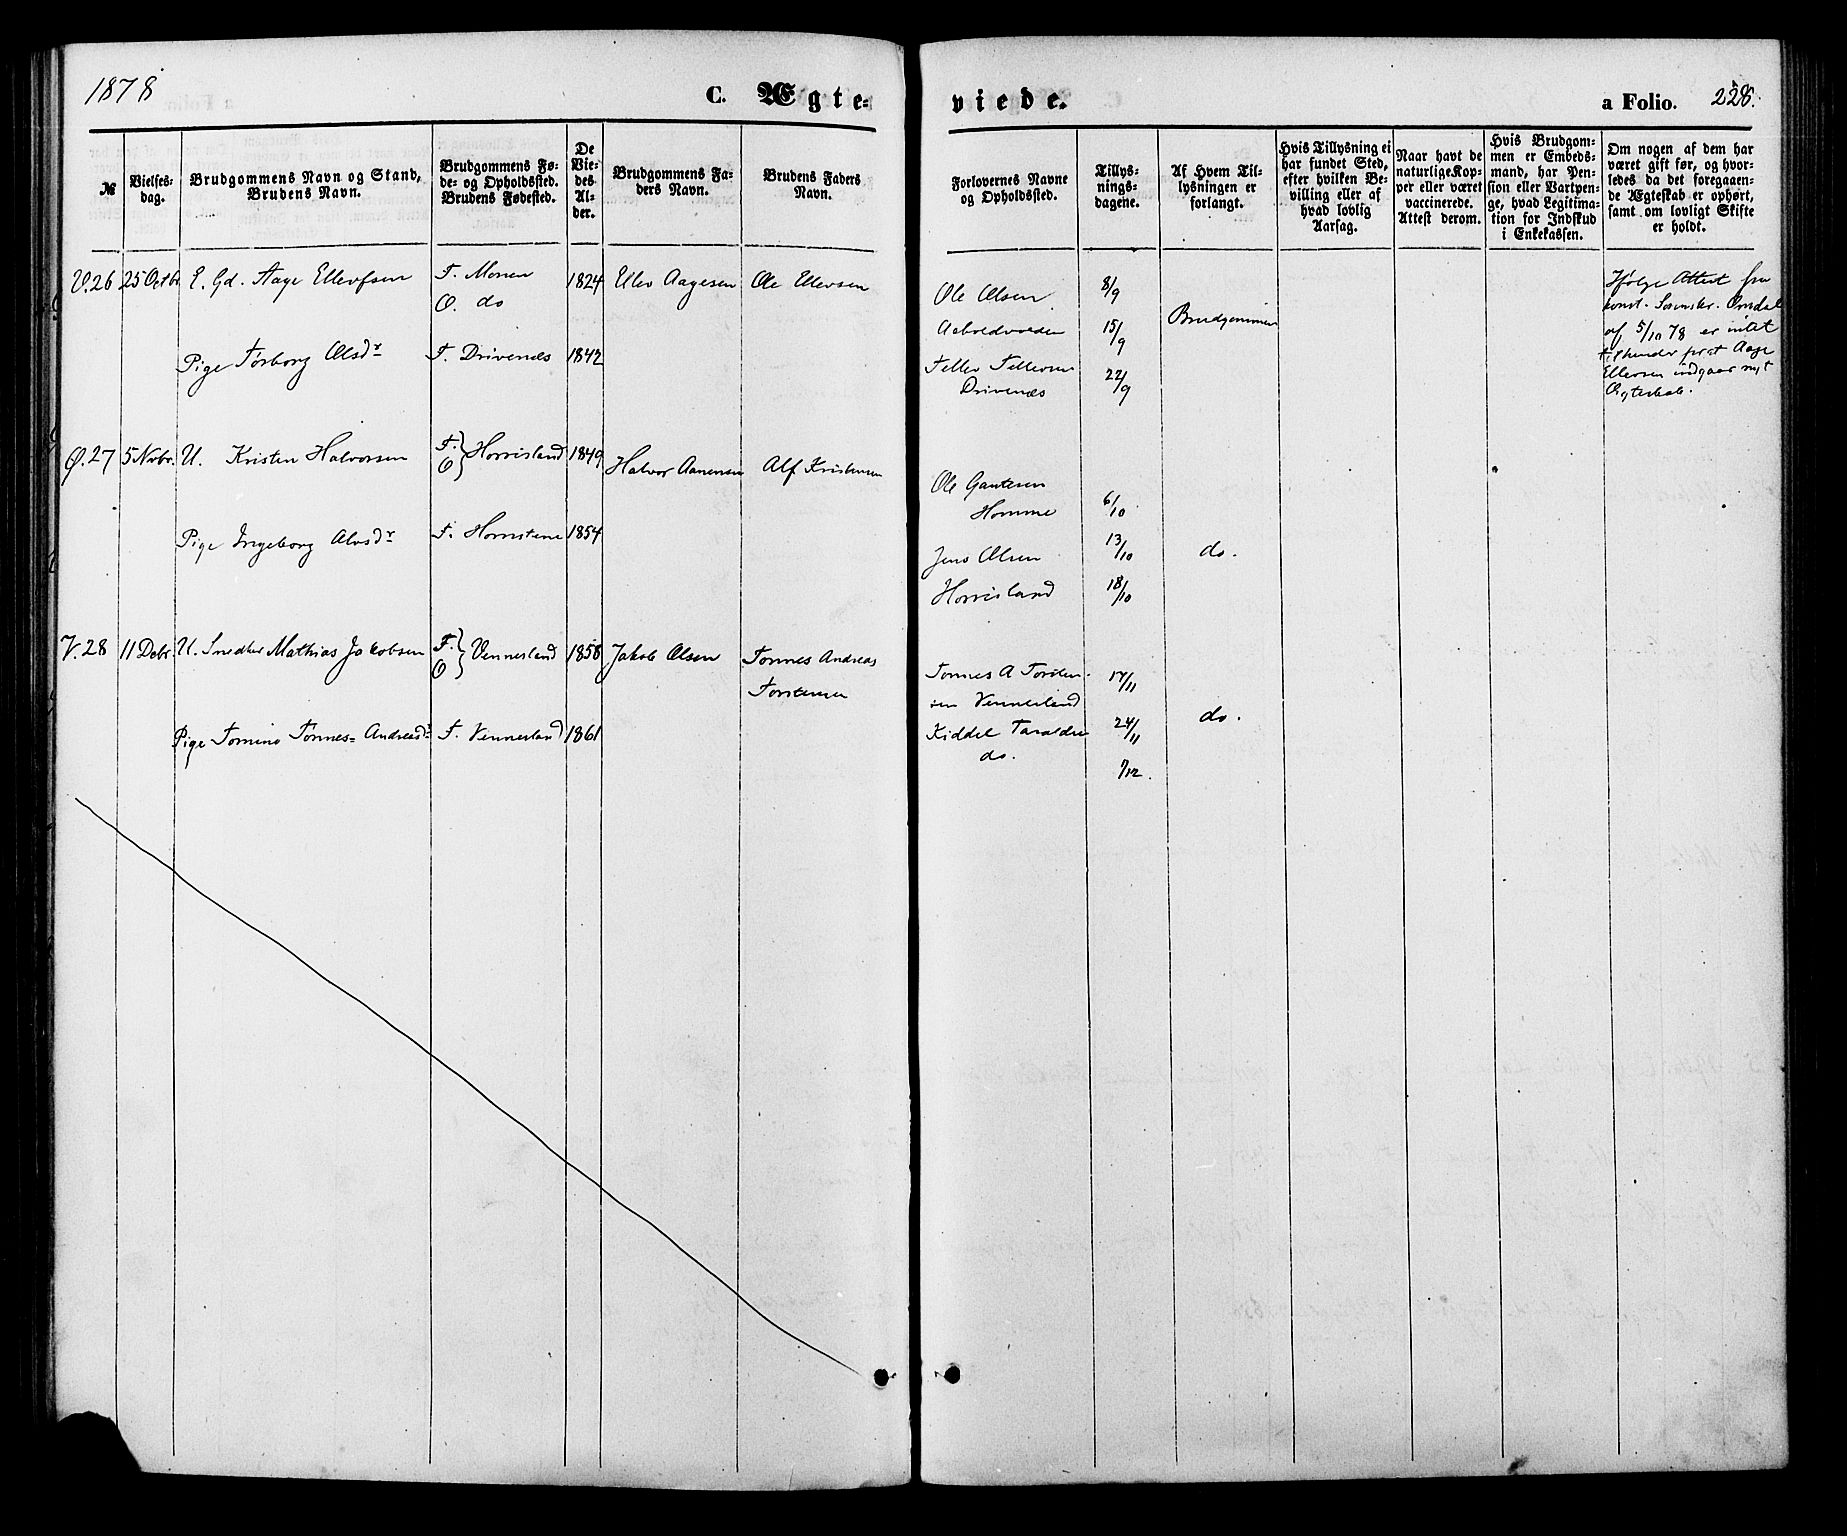 1878
C. Ægte-
viede.
a Folio. 228.
№
Vielses-
dag.
Brudgommens Navn og Stand,
Brudens Navn.
Brudgommens Fø-
de- og Opholdssted.
Brudens Fødested.
De
Vie-
des
Al-
der.
Brudgommens Fa-
ders Navn.
Brudens Faders
Navn.
Forlovernes Navne
og Opholdssted.
Tillys-
nings-
dagene.
Af Hvem Til-
lysningen er
forlangt.
Hvis Tillysning ei
har fundet Sted,
efter hvilken Be-
villing eller af
hvad lovlig
Aarsag.
Naar havt de
naturlige Kop-
per eller været
vaccinerede.
Attest derom.
Hvis Brudgom-
men er Embeds-
mand, har Pen-
sion eller Vartpen-
ge, hvad Legitima-
tion for Indskud
i Enkekassen.
Om nogen af dem har
været gift før, og hvor-
ledes da det foregaaen-
de Ægteskab er ophørt,
samt om lovligt Skifte
er holdt.
V. 26 25 Octbr. E. Gd. Aage Ellevsen F. Monen 1824 Ellev Aagesen Ole Ellevsen
O. do
Pige Torborg Olsdr F. Drivenæs 1842
Ole Olsen 8/9
15/9 Brudgommen
Tellev Tellevsen 22/9
Drivenæs
Ifølge Attest fra
konst. Sorenskr. Omdal
af 5/10 78 er intet
til hinder for at Aage
Ellevsen indgaar nyt
Ægteskab.
Ø. 27 5 Novbr. U. Kristen Halvorsen F. O } Horrisland 1849 Halvor Aanensen Alf Kristensen
Pige Ingeborg Alvsdr F. 1854
Ole Gautesen
Homme 6/10
Jens Olsen 13/10 do.
Horrisland 18/10
V. 28 11 Decbr. U. Snedker Mathias Jakobsen F. O } Vennesland 1858 Jakob Olsen Tønnes Andreas
Torstensen
Pige Tomine Tønnes= Andreasdr F. Vennesland 1861
Tønnes A Torsten-
sen Vennesland 17/11
Kiddel Taraldsen 24/11 do.
do.
1/12.